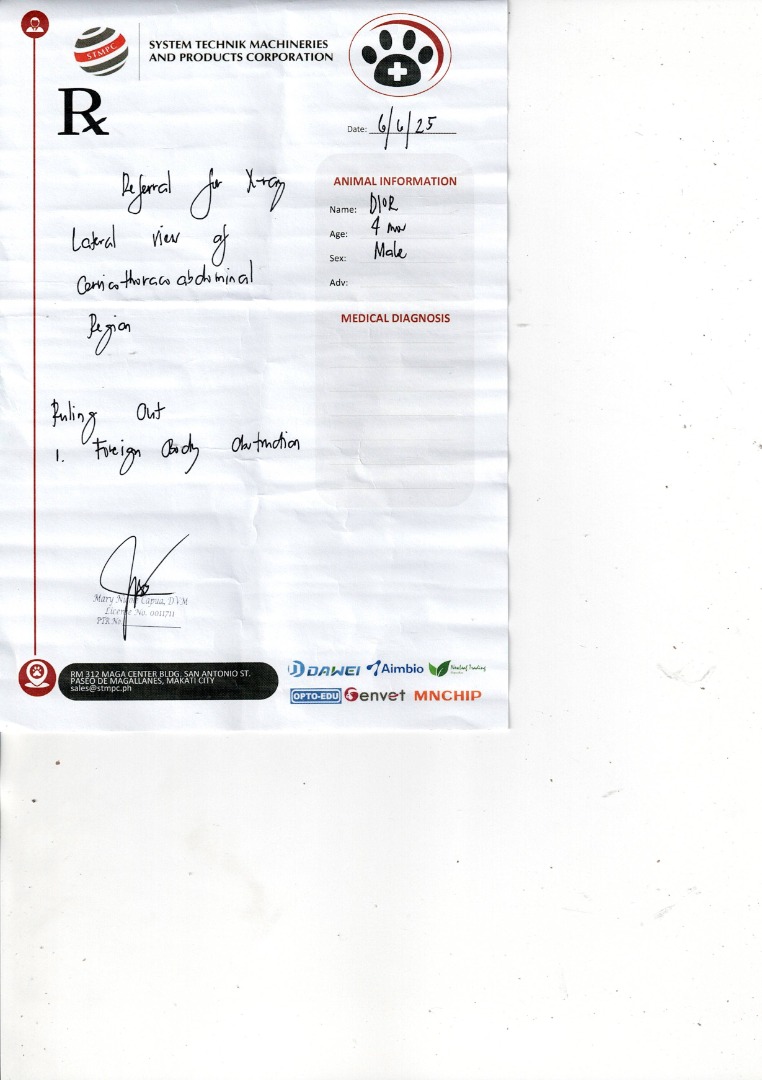 STMPC
SYSTEM TECHNIK MACHINERIES
AND PRODUCTS CORPORATION
Rx
Date: 6/6/25
Referral for X-ray
Lateral view of
Cervicothoraco abdominal
Region
Ruling Out
1. Foreign Body Obstruction
ANIMAL INFORMATION
Name: DIOR
Age: 4 mos
Sex: Male
Adv:
MEDICAL DIAGNOSIS
Mary Capua, DVM
License No. 0011711
PTR No.
RM 312 MAGA CENTER BLDG. SAN ANTONIO ST.
PASEO DE MAGALLANES, MAKATI CITY
sales@stmpc.ph
DAWEI Aimbio Newleaf Trading
OPTO-EDU Genvet MNCHIP